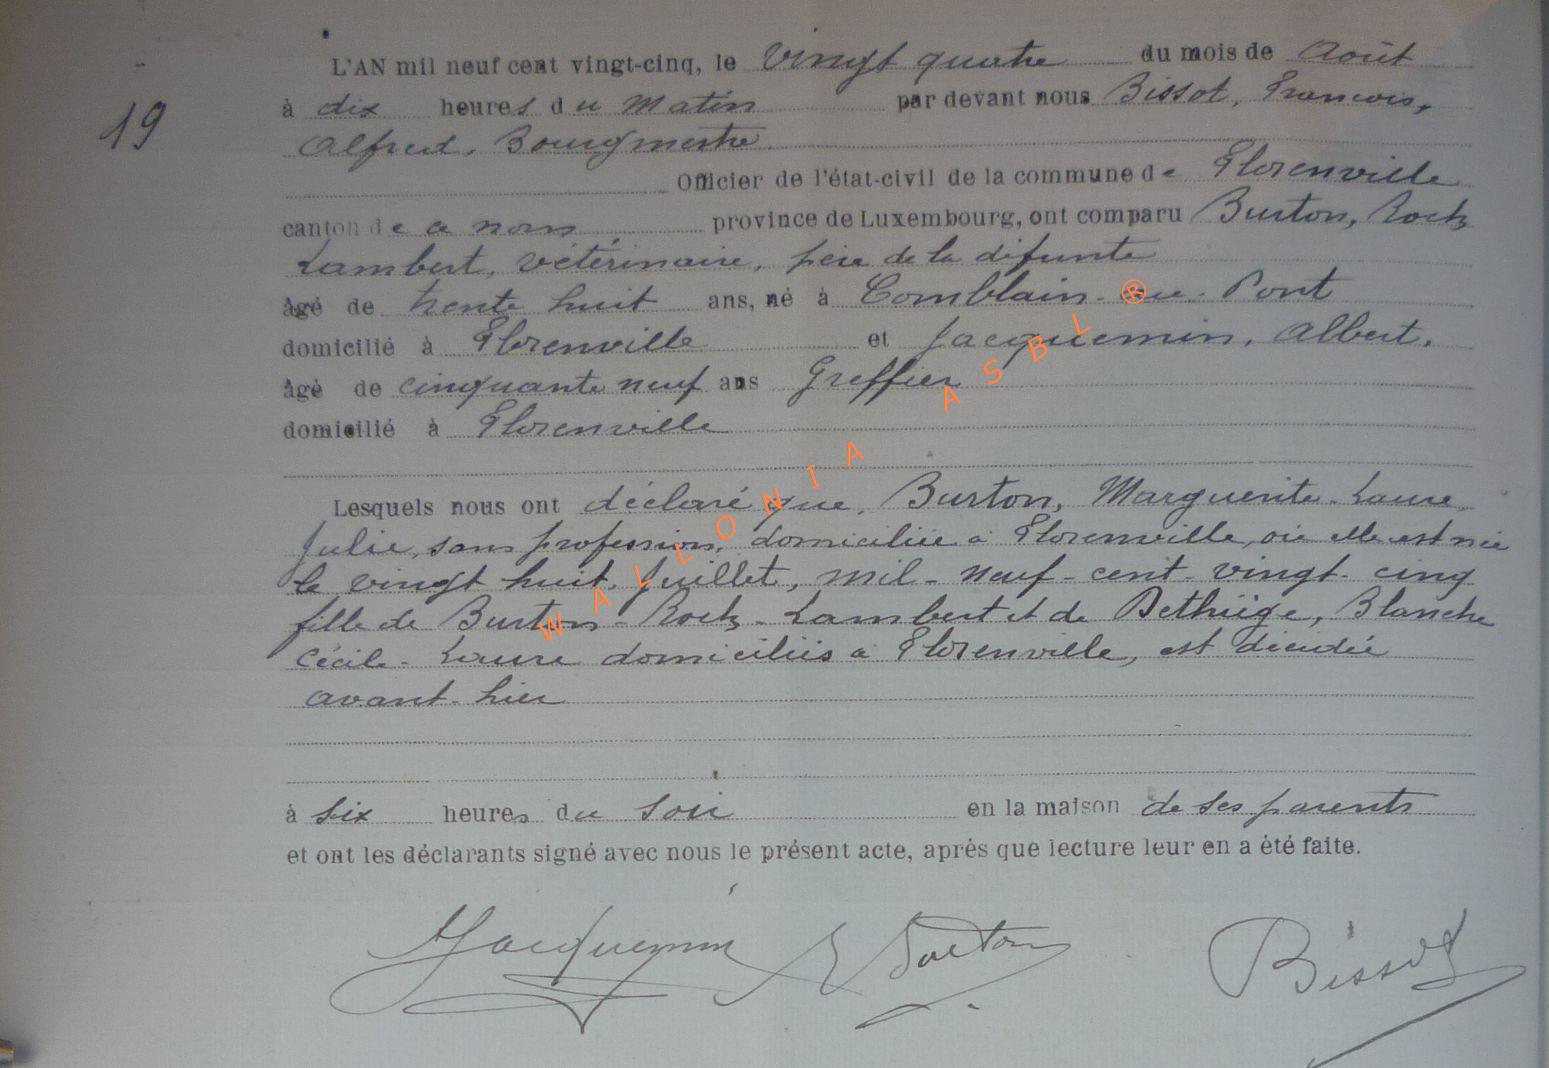 L'AN mil neuf cent vingt-cinq, le vingt quatre du mois de Août
19
à dix heures du matin par devant nous Bissot, François,
Alfred, Bourgmestre.
Officier de l'état-civil de la commune de Florenville
canton de a nom province de Luxembourg, ont comparu Burton, Roch
Lambert, vétérinaire, père de la défunte
âgé de trente huit ans, né à Comblain-au-Pont
domicilié à Florenville et Jacquemin, Albert,
âgé de cinquante neuf ans Greffier
domicilié à Florenville
Lesquels nous ont déclaré que, Burton, Marguerite-Laure
Julie, sans profession, domiciliée à Florenville, où elle est née
le vingt huit Juillet, mil-neuf-cent-vingt-cinq
fille de Burton-Roch-Lambert et de Blanche
Cécile-Laure domiciliés à Florenville, est décédée
avant-hier
à six heures du soir en la maison de ses parents
et ont les déclarants signé avec nous le présent acte, après que lecture leur en a été faite.
AJacquemin Burton Bissot
WALLONIA ASBL ®